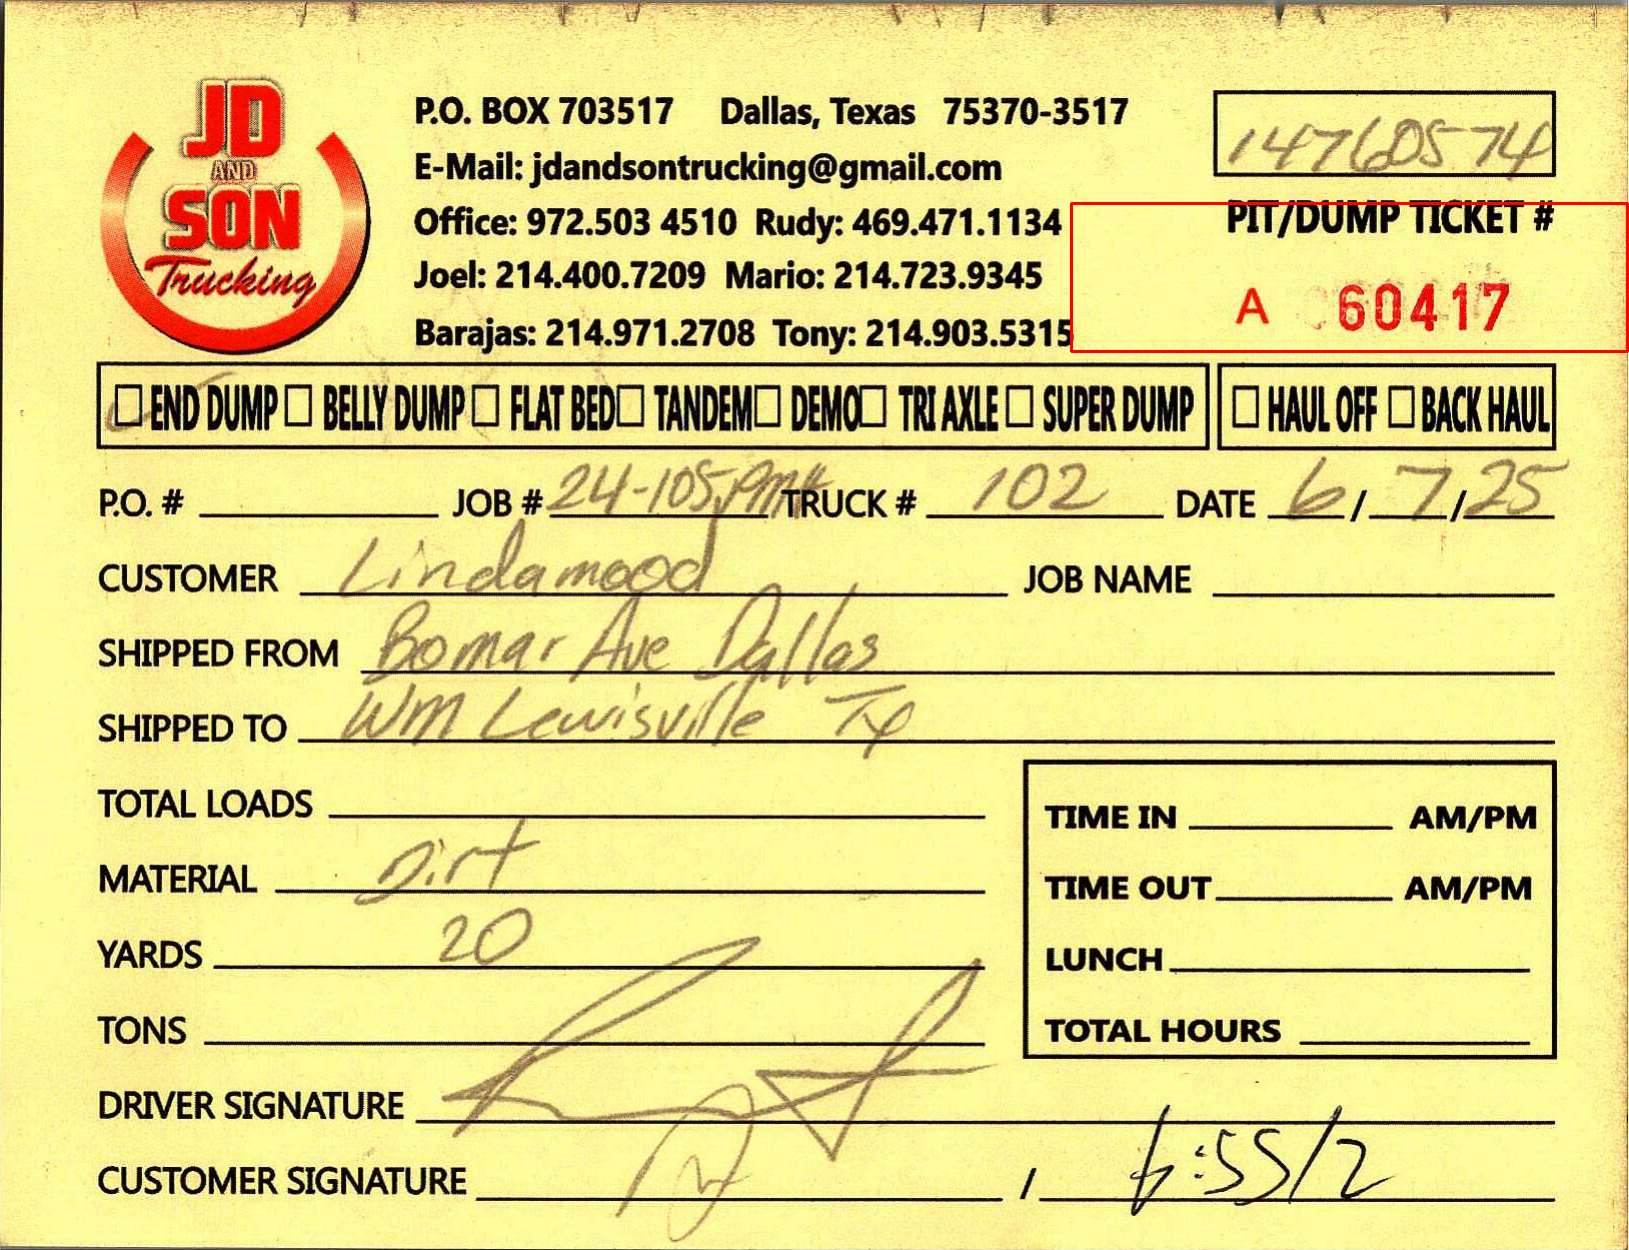 JD
AND
SON
Trucking
P.O. BOX 703517 Dallas, Texas 75370-3517
E-Mail: jdandsontrucking@gmail.com
Office: 972.503 4510 Rudy: 469.471.1134
Joel: 214.400.7209 Mario: 214.723.9345
Barajas: 214.971.2708 Tony: 214.903.5315
14760574
PIT/DUMP TICKET #
A 60417
END DUMP BELLY DUMP FLAT BED TANDEM DEMO TRI AXLE SUPER DUMP HAUL OFF BACK HAUL
P.O. # JOB # 24-105 PM# TRUCK # 102 DATE 6/7/25
CUSTOMER Lindamood JOB NAME
SHIPPED FROM Bomar Ave Dallas
SHIPPED TO WM Lewisville Tx
TOTAL LOADS
MATERIAL Dirt
YARDS 20
TONS
TIME IN AM/PM
TIME OUT AM/PM
LUNCH
TOTAL HOURS
DRIVER SIGNATURE
CUSTOMER SIGNATURE / 6:55/2